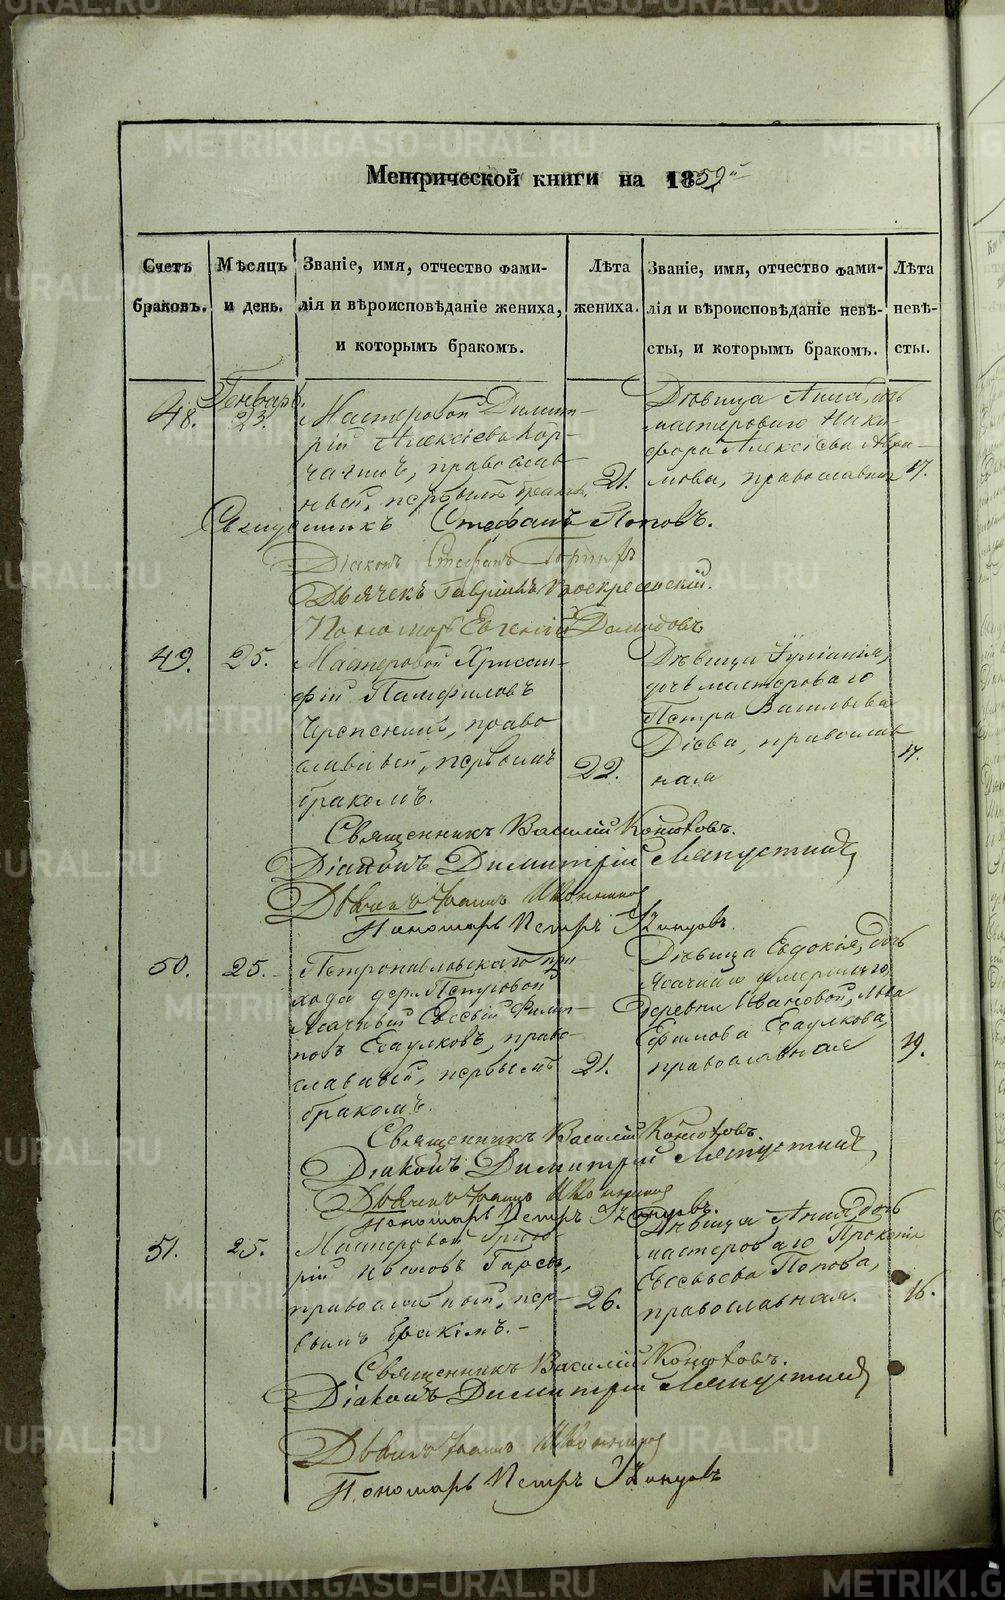 Метрической книги на 1859й
Счетъ
браковъ.
Мѣсяцъ
и день.
Званіе, имя, отчество фами-
лія и вѣроисповѣданіе жениха,
и которымъ бракомъ.
Лѣта
жениха.
Званіе, имя, отчество фами-
лія и вѣроисповѣданіе невѣ-
сты, и которымъ бракомъ.
Лѣта
невѣ-
сты.
Генварь.
48.
23.
Мастеровой Димит-
рій Алексіевъ Кор-
чагинъ, православ-
ный, первымъ бракомъ,
21.
Дѣвица Анна, дочь
мастероваго Ники-
фора Алексіева Абра-
мова, православная
17.
Священникъ Стефанъ Поповъ.
Діаконъ Стефанъ
Дьячекъ Гавріилъ Воскресенскій.
Пономарь Евгеній Демидовъ
49.
25.
Мастеровой Хрисан-
фій Памфиловъ
православный, первымъ
бракомъ.
22.
Дѣвица Іуліанія,
дочь мастероваго
Петра Васильева
Діева, православ-
ная
17.
Священникъ Василій Конюховъ.
Діаконъ Димитрій Мяпустинъ
Дьячекъ Іоаннъ
Пономарь Петръ
50.
25.
Петропавловскаго при-
хода дер. Петровой
Ясачный Евсевій Филип-
повъ Есаулковъ, право-
славный, первымъ
бракомъ.
21.
Дѣвица Евдокія, дочь
Ясачнаго умершаго
деревни Ивановой, Льва
Ефимова Есаулкова,
православная
19.
Священникъ Василій Конюховъ.
Діаконъ Димитрій Мяпустинъ
Дьячекъ Іоаннъ
Пономарь Петръ
51.
25.
Мастеровой Григо-
рій Ивановъ
православный, пер-
вымъ бракомъ.-
26.
Дѣвица Анна, дочь
мастероваго Прокопія
Евсевьева Попова,
православная.
16.
Священникъ Василій Конюховъ.
Діаконъ Димитрій Мяпустинъ
Дьячекъ Іоаннъ
Пономарь Петръ
METRIKI.GASO-URAL.RU